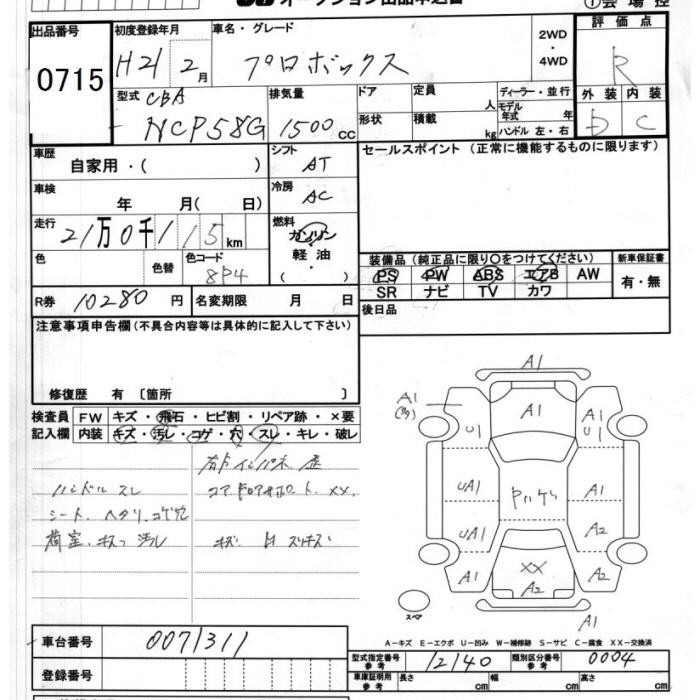 出品番号
0715
初度登録年月
H21 2月
車名・グレード
プロボックス
2WD
・
4WD
評価点
R
型式
CBA
NCP58G
排気量
1500 cc
ドア
形状
定員
人
積載
kg
ディーラー・並行
モデル年式 年
ハンドル 左・右
外装 内装
D C
車歴
自家用・( )
シフト
AT
セールスポイント (正常に機能するものに限ります)
車検
年 月( 日)
冷房
AC
走行
21万0千115km
燃料
ガソリン
軽油
・
( )
色
色替
色コード
8P4
装備品 (純正品に限り○をつけてください)
新車保証書
PS PW ABS エアB AW
有・無
SR ナビ TV カワ
R券 10280 円
名変期限 月 日
後日品
注意事項申告欄 (不具合内容等は具体的に記入して下さい)
修復歴 有 〔箇所 〕
検査員
記入欄
FW キズ・飛石・ヒビ割・リペア跡・×要
内装 キズ・汚レ・コゲ・穴・スレ・キレ・破レ
ハンドル スレ
シート、ヘタリ、コゲ穴
A1
A1
A1
A1
U1
U1
UA1
A1
UA1
A2
A1
XX
A2
A2
A1
スペア
A-キズ E-エクボ U-凹み W-補修跡 S-サビ C-腐食 XX-交換済
車台番号
0071311
登録番号
型式指定番号
参考
12140
類別区分番号
参考
0004
車庫証明用
参考
長さ cm
幅 cm
高さ cm